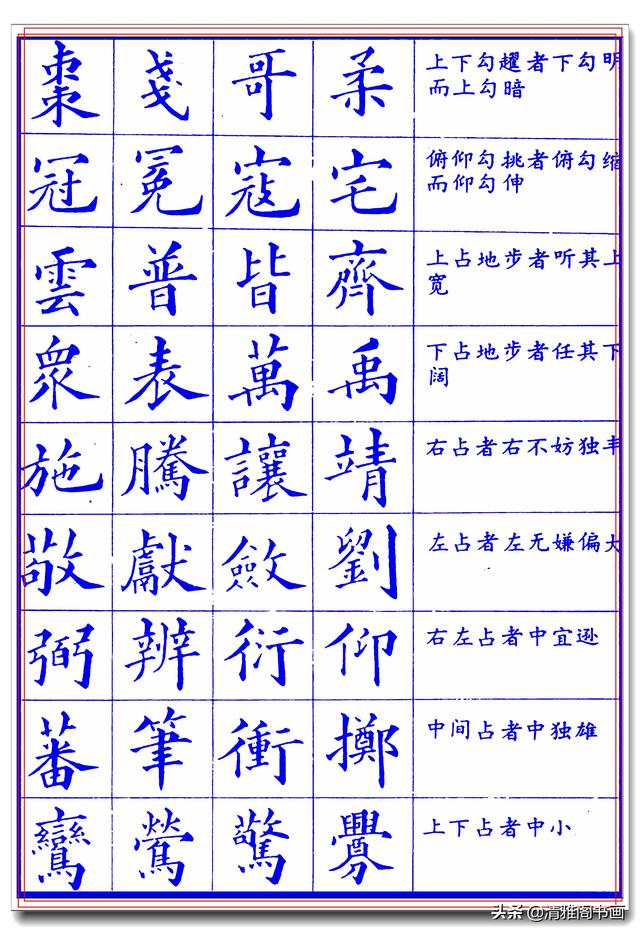 棗 戔 哥 柔
上下勾趯者下勾明
而上勾暗
冠 冕 寇 宅
俯仰勾挑者俯勾缩
而仰勾伸
雲 普 皆 齊
上占地步者听其上
宽
衆 表 萬 禹
下占地步者任其下
阔
施 騰 讓 靖
右占者右不妨独丰
敬 獻 斂 劉
左占者左无嫌偏大
弼 辨 衍 仰
右左占者中宜逊
蕃 筆 衝 擲
中间占者中独雄
鸞 鶯 驚
上下占者中小
头条 @清雅阁书画